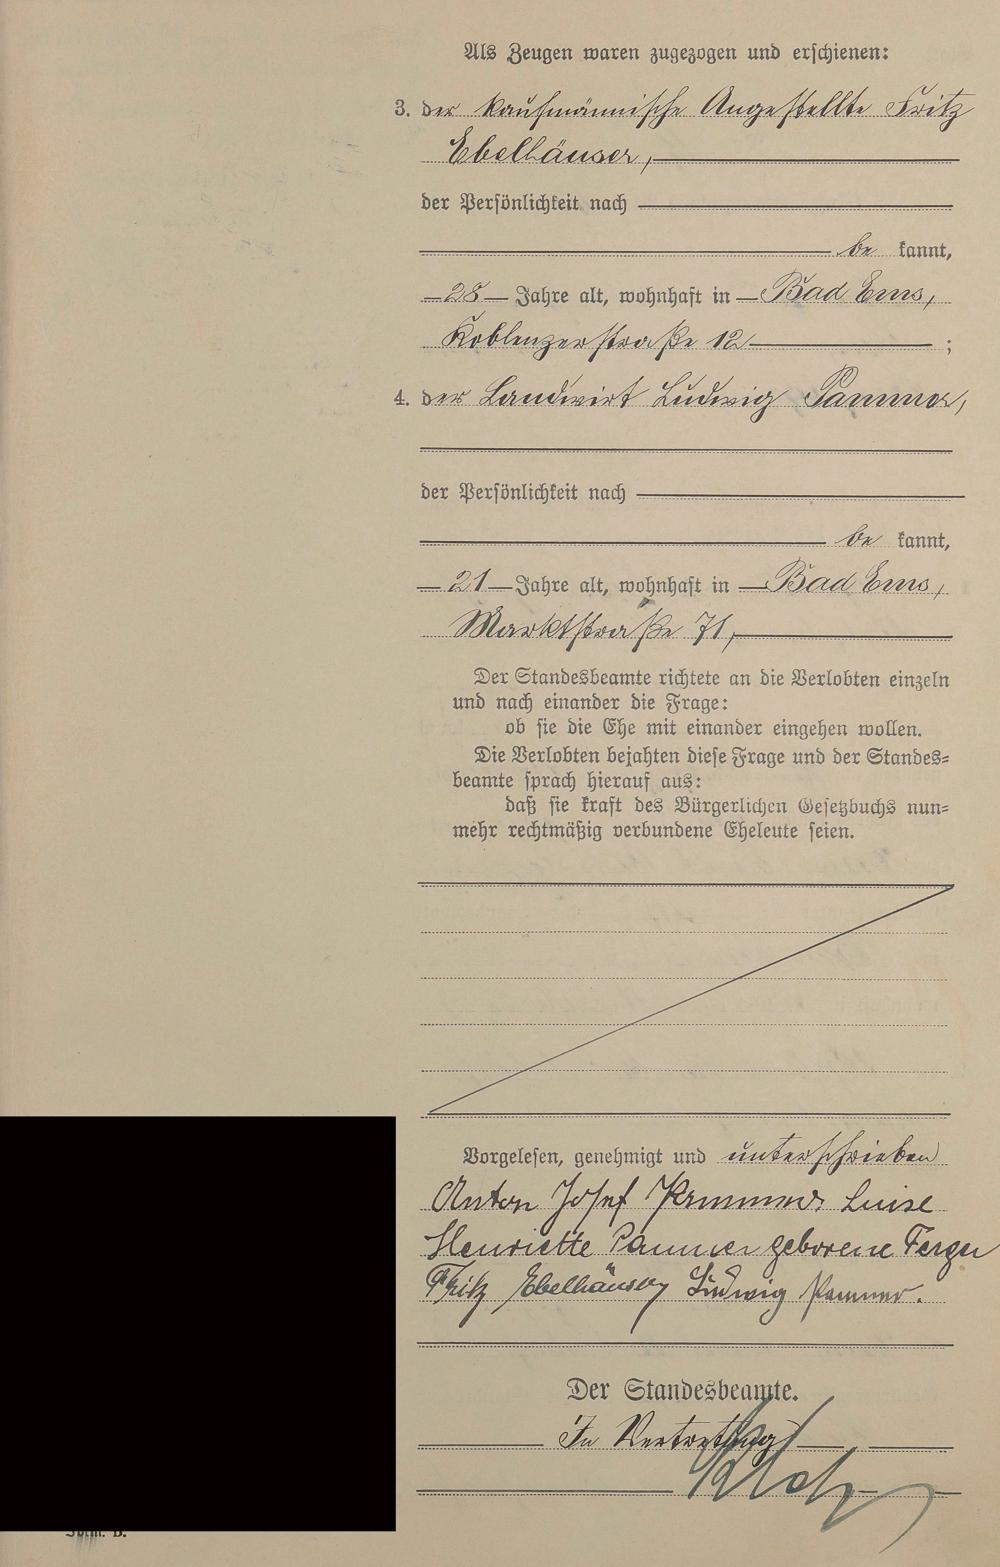 Als Zeugen waren zugezogen und erschienen:
3. der kaufmännische Angestellte Fritz
Ebelhäuser,
der Persönlichkeit nach
be kannt,
28 Jahre alt, wohnhaft in Bad Ems,
Koblenzerstraße 12 ;
4. der Landwirt Ludwig Pammer,
der Persönlichkeit nach
be kannt,
21 Jahre alt, wohnhaft in Bad Ems,
Marktstraße 71,
Der Standesbeamte richtete an die Verlobten einzeln
und nach einander die Frage:
ob sie die Ehe mit einander eingehen wollen.
Die Verlobten bejahten diese Frage und der Standes-
beamte sprach hierauf aus:
daß sie kraft des Bürgerlichen Gesetzbuchs nun-
mehr rechtmäßig verbundene Eheleute seien.
Vorgelesen, genehmigt und unterschrieben
Anton Josef Pammer. Luise
Henriette Pammer geborene Ferger
Fritz Ebelhäuser Ludwig Pammer.
Der Standesbeamte.
In Vertretung
B.